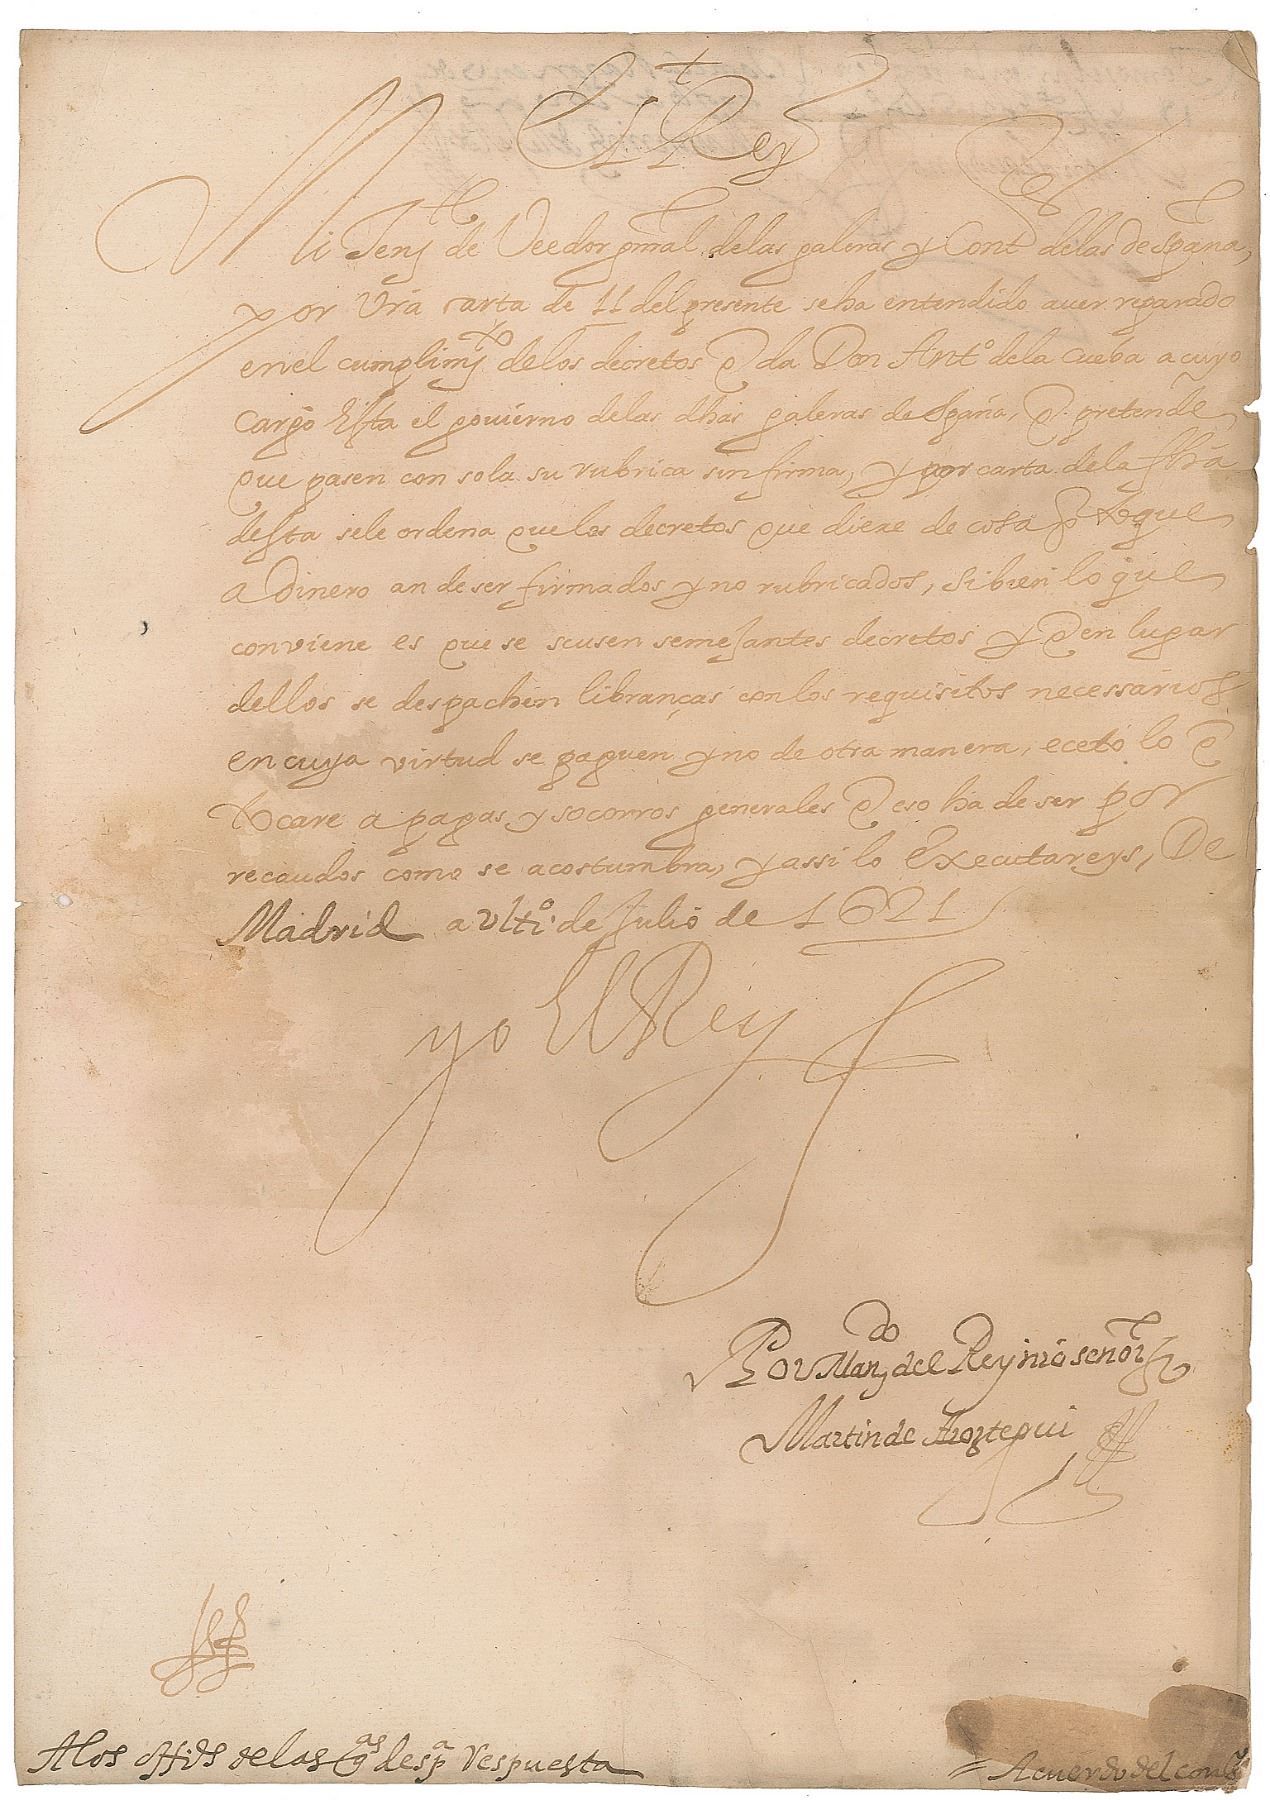 El Rey
Mi Ten.te de Veedor gen.al de las galeras y Cont.r de las despana,
por Vr̃a carta de 11 del presente se ha entendido aver reparado
en el cumplim.to de los decretos q̃ da Don Ant.o de la Cueba a cuyo
cargo Esta el govierno de las dhas galeras de España, q̃ pretende
que pasen con sola su rubrica sin firma, y por carta de la fha
desta se le ordena que los decretos que diere de cosa q̃ toque
a Dinero an de ser firmados y no rubricados, si bien lo que
conviene es que se scusen semejantes decretos y q̃ en lugar
dellos se despachen libranças con los requisitos necessarios
en cuya virtud se paguen y no de otra manera, eceto lo q̃
tocare a pagas y socorros generales q̃ eso ha de ser por
recaudos como se acostumbra, y assi lo Executareys, De
Madrid a ulti.o de Julio de 1621
yo El Rey
Por Man.do del Rey nr̃o señor
Martin de Aroztegui
A los offi.os de las g.as de esp.a Respuesta
Acuerdo del cons.o